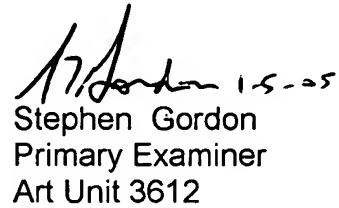 1-5-05
Stephen Gordon
Primary Examiner
Art Unit 3612